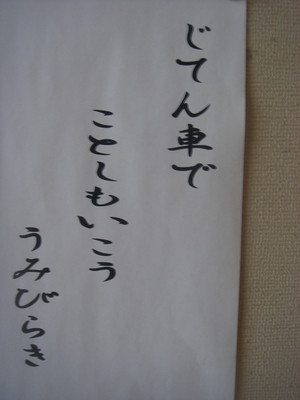 じてん車で
ことしもいこう
うみびらき